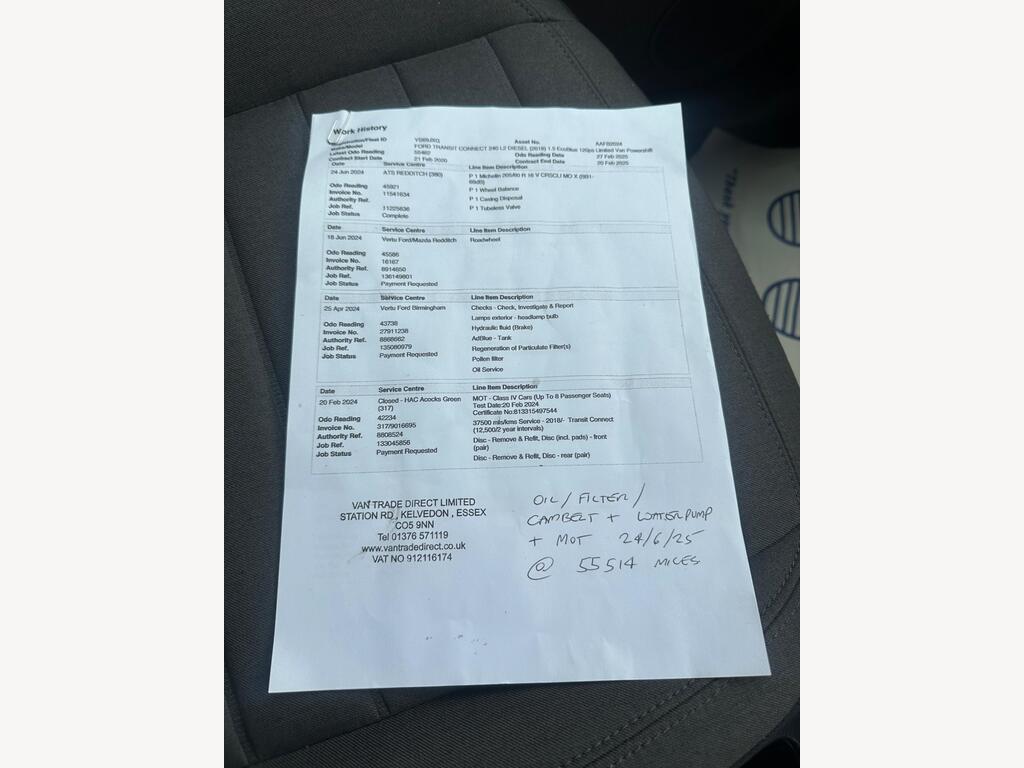 Work History
Registration/Fleet ID Asset No. AAFB2024
Make/Model FORD TRANSIT CONNECT 240 L2 DIESEL (2018) 1.5 EcoBlue 120ps Limited Van Powershift
Latest Odo Reading 55462 Odo Reading Date 27 Feb 2025
Contract Start Date 21 Feb 2020 Contract End Date 20 Feb 2025
Date Service Centre Line Item Description
24 Jun 2024 ATS REDDITCH (380) P 1 Michelin 205/60 R 16 V CRSCLI MO X (B91-
69dB)
Odo Reading 45921 P 1 Wheel Balance
Invoice No. 11541634 P 1 Casing Disposal
Authority Ref.
Job Ref. 11225636 P 1 Tubeless Valve
Job Status Complete
Date Service Centre Line Item Description
18 Jun 2024 Vertu Ford/Mazda Redditch Roadwheel
Odo Reading 45586
Invoice No. 16167
Authority Ref. 8914650
Job Ref. 136149801
Job Status Payment Requested
Date Service Centre Line Item Description
25 Apr 2024 Vertu Ford Birmingham Checks - Check, Investigate & Report
Lamps exterior - headlamp bulb
Odo Reading 43738 Hydraulic fluid (Brake)
Invoice No. 27911238
Authority Ref. 8868662 AdBlue - Tank
Job Ref. 135080979 Regeneration of Particulate Filter(s)
Job Status Payment Requested Pollen filter
Oil Service
Date Service Centre Line Item Description
20 Feb 2024 Closed - HAC Acocks Green
(317) MOT - Class IV Cars (Up To 8 Passenger Seats)
Test Date:20 Feb 2024
Certificate No:813315497544
Odo Reading 42234 37500 mls/kms Service - 2018/- Transit Connect
Invoice No. 317/9016695 (12,500/2 year intervals)
Authority Ref. 8808524 Disc - Remove & Refit, Disc (incl. pads) - front
Job Ref. 133045856 (pair)
Job Status Payment Requested Disc - Remove & Refit, Disc - rear (pair)
VAN TRADE DIRECT LIMITED
STATION RD, KELVEDON, ESSEX
CO5 9NN
Tel 01376 571119
www.vantradedirect.co.uk
VAT NO 912116174
OIL / FILTER /
CAMBELT + WATERPUMP
+ MOT 24/6/25
@ 55514 MILES